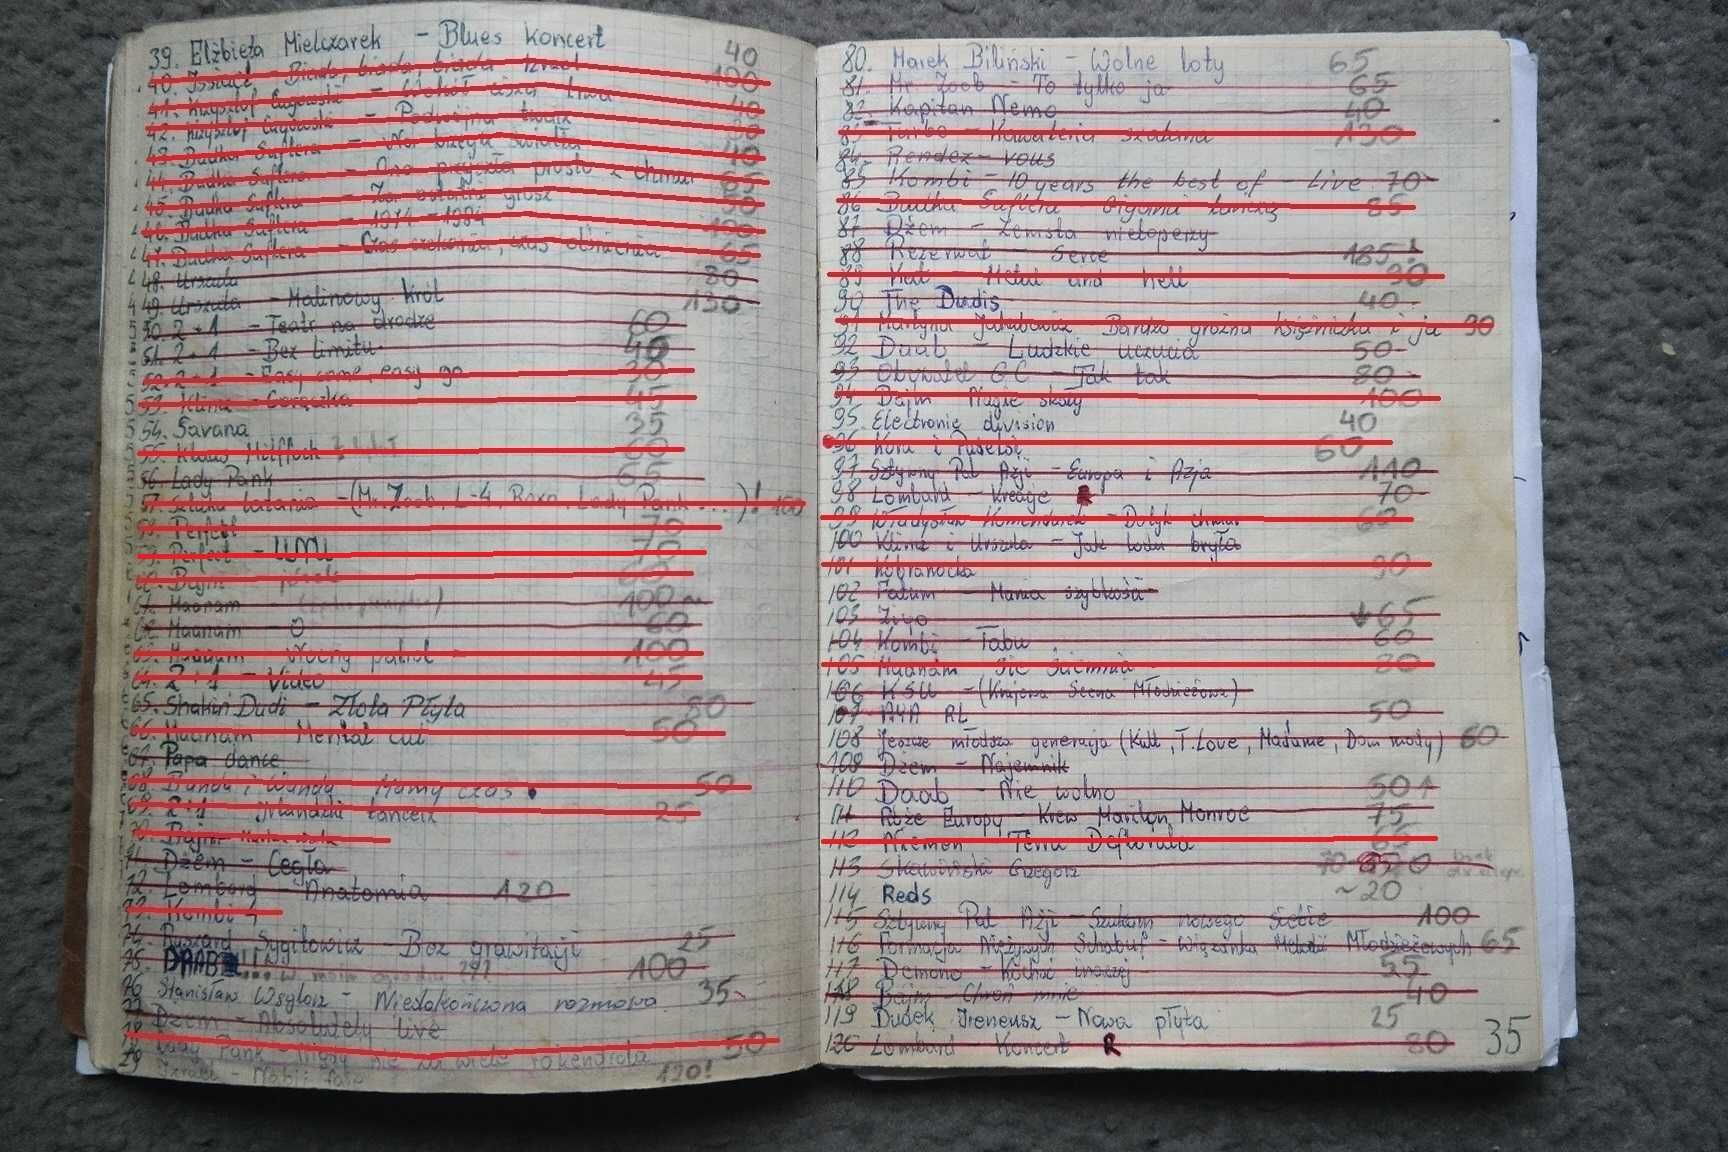 39. Elżbieta Mielczarek - Blues koncert 40
40. Izrael - Biada, biada, biada Izrael 100
41. Krzysztof Cugowski - Wokół cisza trwa 40
42. Krzysztof Cugowski - Podwójna twarz 30
43. Budka Suflera - Na brzegu światła 40
44. Budka Suflera - Ona przyszła prosto z chmur 65
45. Budka Suflera - Za ostatni grosz 50
46. Budka Suflera - 1974-1984 100
47. Budka Suflera - Czas czekania, czas olśnienia 65
48. Urszula 80
49. Urszula - Malinowy Król 130
50 2+1 - Teatr na drodze 60
51. 2+1 - Bez limitu 40
52. 2+1 - Easy come, easy go 30
53. Klincz - Gorączka 45
54. Savana 35
55. Klaus Mitffoch 60
56. Lady Pank 65
57. Sztuka latania - (Mr. Zoob, L-4, Roxa, Lady Pank...)! 100
58. Perfect 70
59. Perfect - UNU 70
60. Bajm
61. Maanam 100
62. Maanam - O 60
63. Maanam - Nocny patrol 100
64. 2+1 - Video 45
65. Shakin Dudi - Złota Płyta 80
66. Maanam - Mental cut 50
67. Papa dance
68. Banda i Wanda - Mamy czas 50
69. 2+1 - Irlandzki tancerz 25
70. Bajm
71. Dżem - Cegła
72. Lombard - Anatomia 120
73. Kombi 4
74. Ryszard Sygitowicz - Bez grawitacji 25
75. DAAB!!... w moim ogrodzie ??? 100
76 Stanisław Wsglosz - Niedokończona rozmowa 35
77. Dżem - Absolutely live
78 Lady Pank - Tacy nie za wiele rokendrola 50
79 Izrael - Nabij faję 120!
80. Marek Biliński - Wolne loty 65
81. Mr Zoob - To tylko ja 65
82. Kapitan Nemo 40
83 Turbo - Kawaleria szatana 130
84. Rendez-vous
85 Kombi - 10 years the best of - Live 70
86 Budka Suflera - Giganci tańczą 85
87 Dżem - Zemsta nietoperzy
88 Rezerwat - Serce 185!
89 Kat - Metal and hell 90
90 The Dudis 40
91 Martyna Jakubowicz - Bardzo groźna księżniczka i ja 90
92 Daab - Ludzkie uczucia 50
93 Obywatel G.C - Tak tak 80
94 Bajm - Nagie skały 100
95. Electronic division 40
96 Kora i Püdelsi 60
97 Sztywny Pal Azji - Europa i Azja 110
98 Lombard - Kreacje R 70
99 Władysław Komendarek - Dotyk chmur 65
100 Klincz i Urszula - Jak lodu bryła
101 Kobranocka 90
102 Fatum - Mania szybkości
103 Ziyo ↓ 65
104 Kombi - Tabu 60
105 Maanam - Się ściemnia 80
106 KSU - (Krajowa Scena Młodzieżowa)
107 AYA RL 50
108 Jeszcze młodsza generacja (Kult, T.Love, Madame, Dom mody) 60
109 Dżem - Najemnik
110 Daab - Nie wolno 50↑
111 Róże Europy - Krew Marilyn Monroe 75
112 Akemon - Terra Deflorata 65
113 Skawiński Grzegorz
114 Reds ~20
115 Sztywny Pal Azji - Szukam nowego siebie 100
116 Formacja Nieżywych Schabuf - Wiązanka Melodii Młodzieżowych 65
117 Demono - Kochać inaczej 55
118 Bajm - Chroń mnie 40
119 Dudek Ireneusz - Nowa płyta 25
120 Lombard - Koncert R 80
35